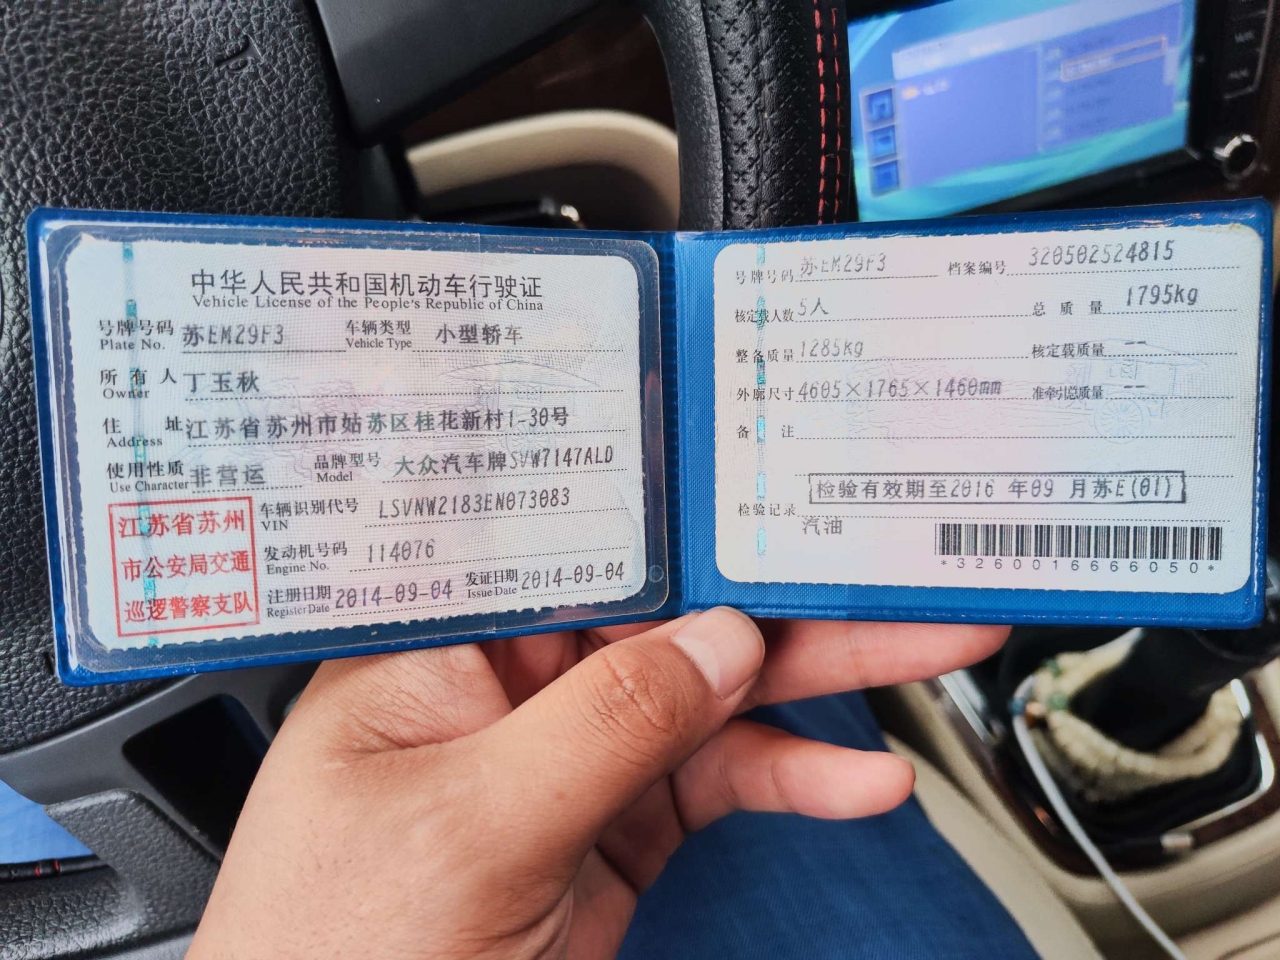 中华人民共和国机动车行驶证
Vehicle License of the People's Republic of China
号牌号码 苏EM29F3 车辆类型 小型轿车
Plate No. Vehicle Type
所有人 丁玉秋
Owner
住址 江苏省苏州市姑苏区桂花新村1-30号
Address
使用性质 非营运 品牌型号 大众汽车牌SVW7147ALD
Use Character Model
江苏省苏州
市公安局交通
巡逻警察支队
车辆识别代号 LSVNW2183EN073083
VIN
发动机号码 114076
Engine No.
注册日期 2014-09-04 发证日期 2014-09-04
Register Date Issue Date
号牌号码 苏EM29F3 档案编号 320502524815
核定载人数 5人 总质量 1795kg
整备质量 1285kg 核定载质量 --
外廓尺寸 4605×1765×1460mm 准牵引总质量 --
备注
检验有效期至2016 年09 月苏E(01)
检验记录
汽油
*3260016666050*